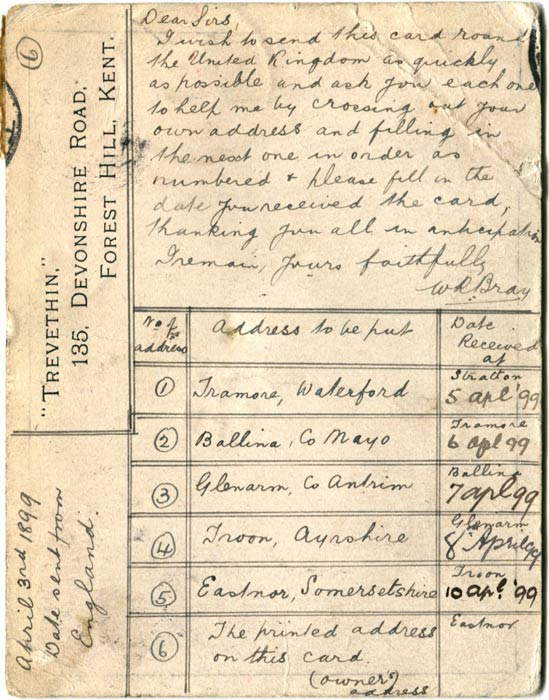 6
"TREVETHIN,"
135, DEVONSHIRE ROAD,
FOREST HILL, KENT.
Dear Sirs,
I wish to send this card round
the United Kingdom as quickly
as possible and ask you each one
to help me by crossing out your
own address and filling in
the next one in order as
numbered & please fill in the
date you received the card,
thanking you all in anticipation
I remain, yours faithfully
W R Bray
No of address
Address to be put
Date Received at
1 Tramore, Waterford Stratton 5 apl '99
2 Ballina, Co Mayo Tramore 6 apl 99
3 Glenarm, Co Antrim Ballina 7 apl 99
4 Troon, Ayrshire Glenarm 8 April 99
5 Eastnor, Somersetshire Troon 10 apl. '99
6 The printed address Eastnor
on this card.
(owner's)
address
April 3rd 1899
Date sent from
England.